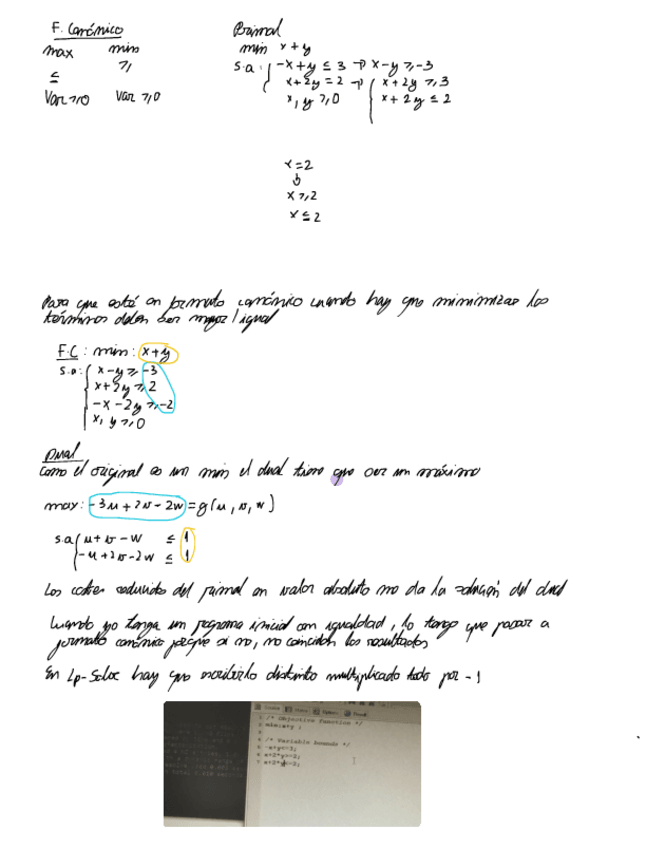 F. Canónico
max min
≤ ≥
Var ≥ 0 Var ≥ 0
Primal
min x+y
s.a: -x+y ≤ 3 → x-y ≥ -3
x+2y = 2 → x+2y ≥ 3
x+2y ≤ 2
x, y ≥ 0
x=2
↓
x ≥ 2
x ≤ 2
Para que esté en formato canónico cuando hay que minimizar los
términos deben ser mayor / igual
F.C : min: x+y
s.a: x-y ≥ -3
x+2y ≥ 2
-x-2y ≥ -2
x, y ≥ 0
Dual
Como el original es un min el dual tiene que ser un máximo
max: -3u+2v-2w = g(u, v, w)
s.a u+v-w ≤ 1
-u+2v-2w ≤ 1
Los costes reducidos del primal en valor absoluto no da la solución del dual
Cuando yo tenga un programa inicial con igualdad, lo tengo que pasar a
formato canónico porque si no, no coinciden los resultados
En Lp-Solve hay que escribirlo distinto multiplicado todo por -1
/* Objective function */
/* Variable bounds */